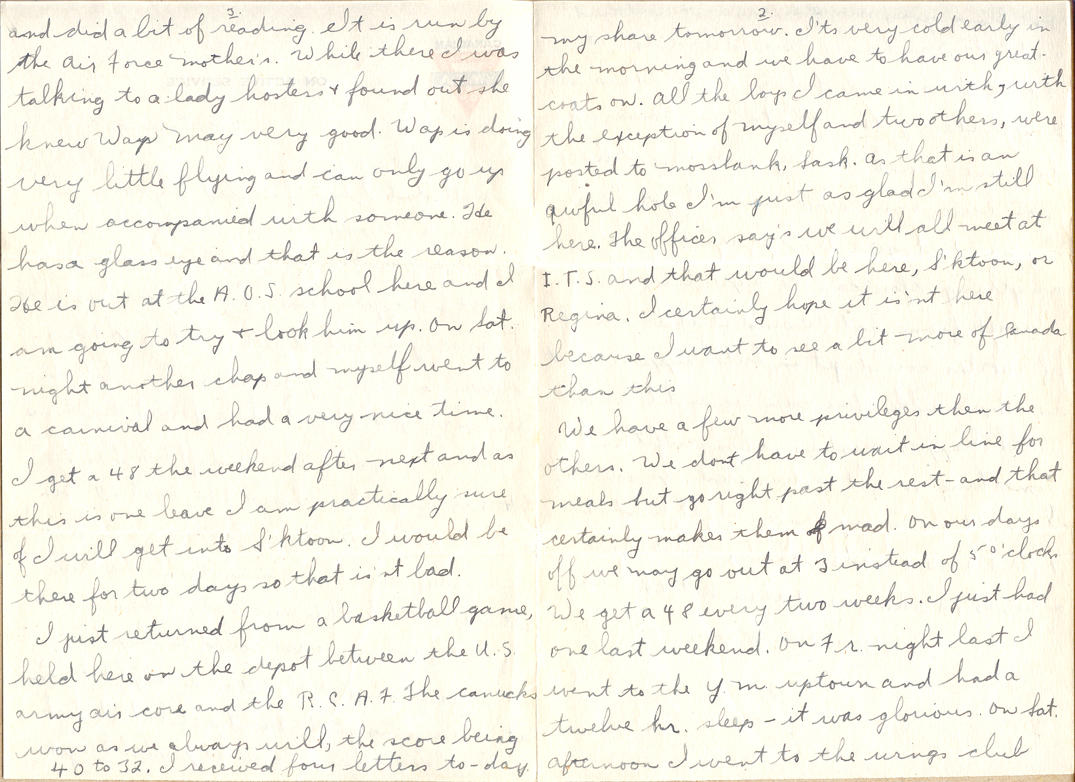 2.
my share tomorrow. I'ts very cold early in
the morning and we have to have our great-
coats on. All the boys I came in with, with
the exception of myself and two others, were
posted to mossbank, Sask. As that is an
awful hole I'm just as glad I'm still
here. The officer say's we will all meet at
I.T.S. and that would be here, S'ktoon, or
Regina. I certainly hope it is'nt here
because I want to see a bit more of Canada
than this
We have a few more privileges then the
others. We dont have to wait in line for
meals but go right past the rest - and that
certainly makes them mad. On our days
off we may go out at 3 instead of 5 o'clock
We get a 48 every two weeks. I just had
one last weekend. On Fr. night last I
went to the Y.M. uptown and had a
twelve hr. sleep - it was glorious. On Sat.
afternoon I went to the wings club
3.
and did a bit of reading. It is run by
the Air Force mother's. While there I was
talking to a lady hostess + found out she
knew Wap May very good. Wap is doing
very little flying and can only go up
when accompanied with someone. He
has a glass eye and that is the reason.
He is out at the A.O.S. school here and I
am going to try + look him up. On Sat.
night another chap and myself went to
a carnival and had a very nice time.
I get a 48 the weekend after next and as
this is one leave I am practically sure
of I will get into S'ktoon. I would be
there for two days so that is'nt bad.
I just returned from a basketball game,
held here on the depot between the U.S.
army air core and the R.C.A.F. The canucks
won as we always will, the score being
40 to 32. I received four letters to-day.